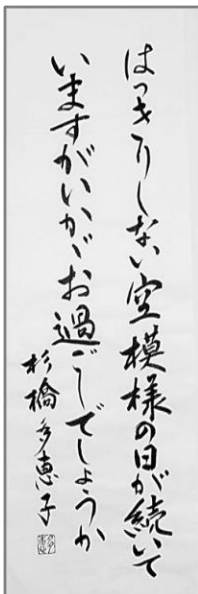 はっきりしない空模様の日が続いて
いますがいかがお過ごしでしょうか
杉橋多恵子